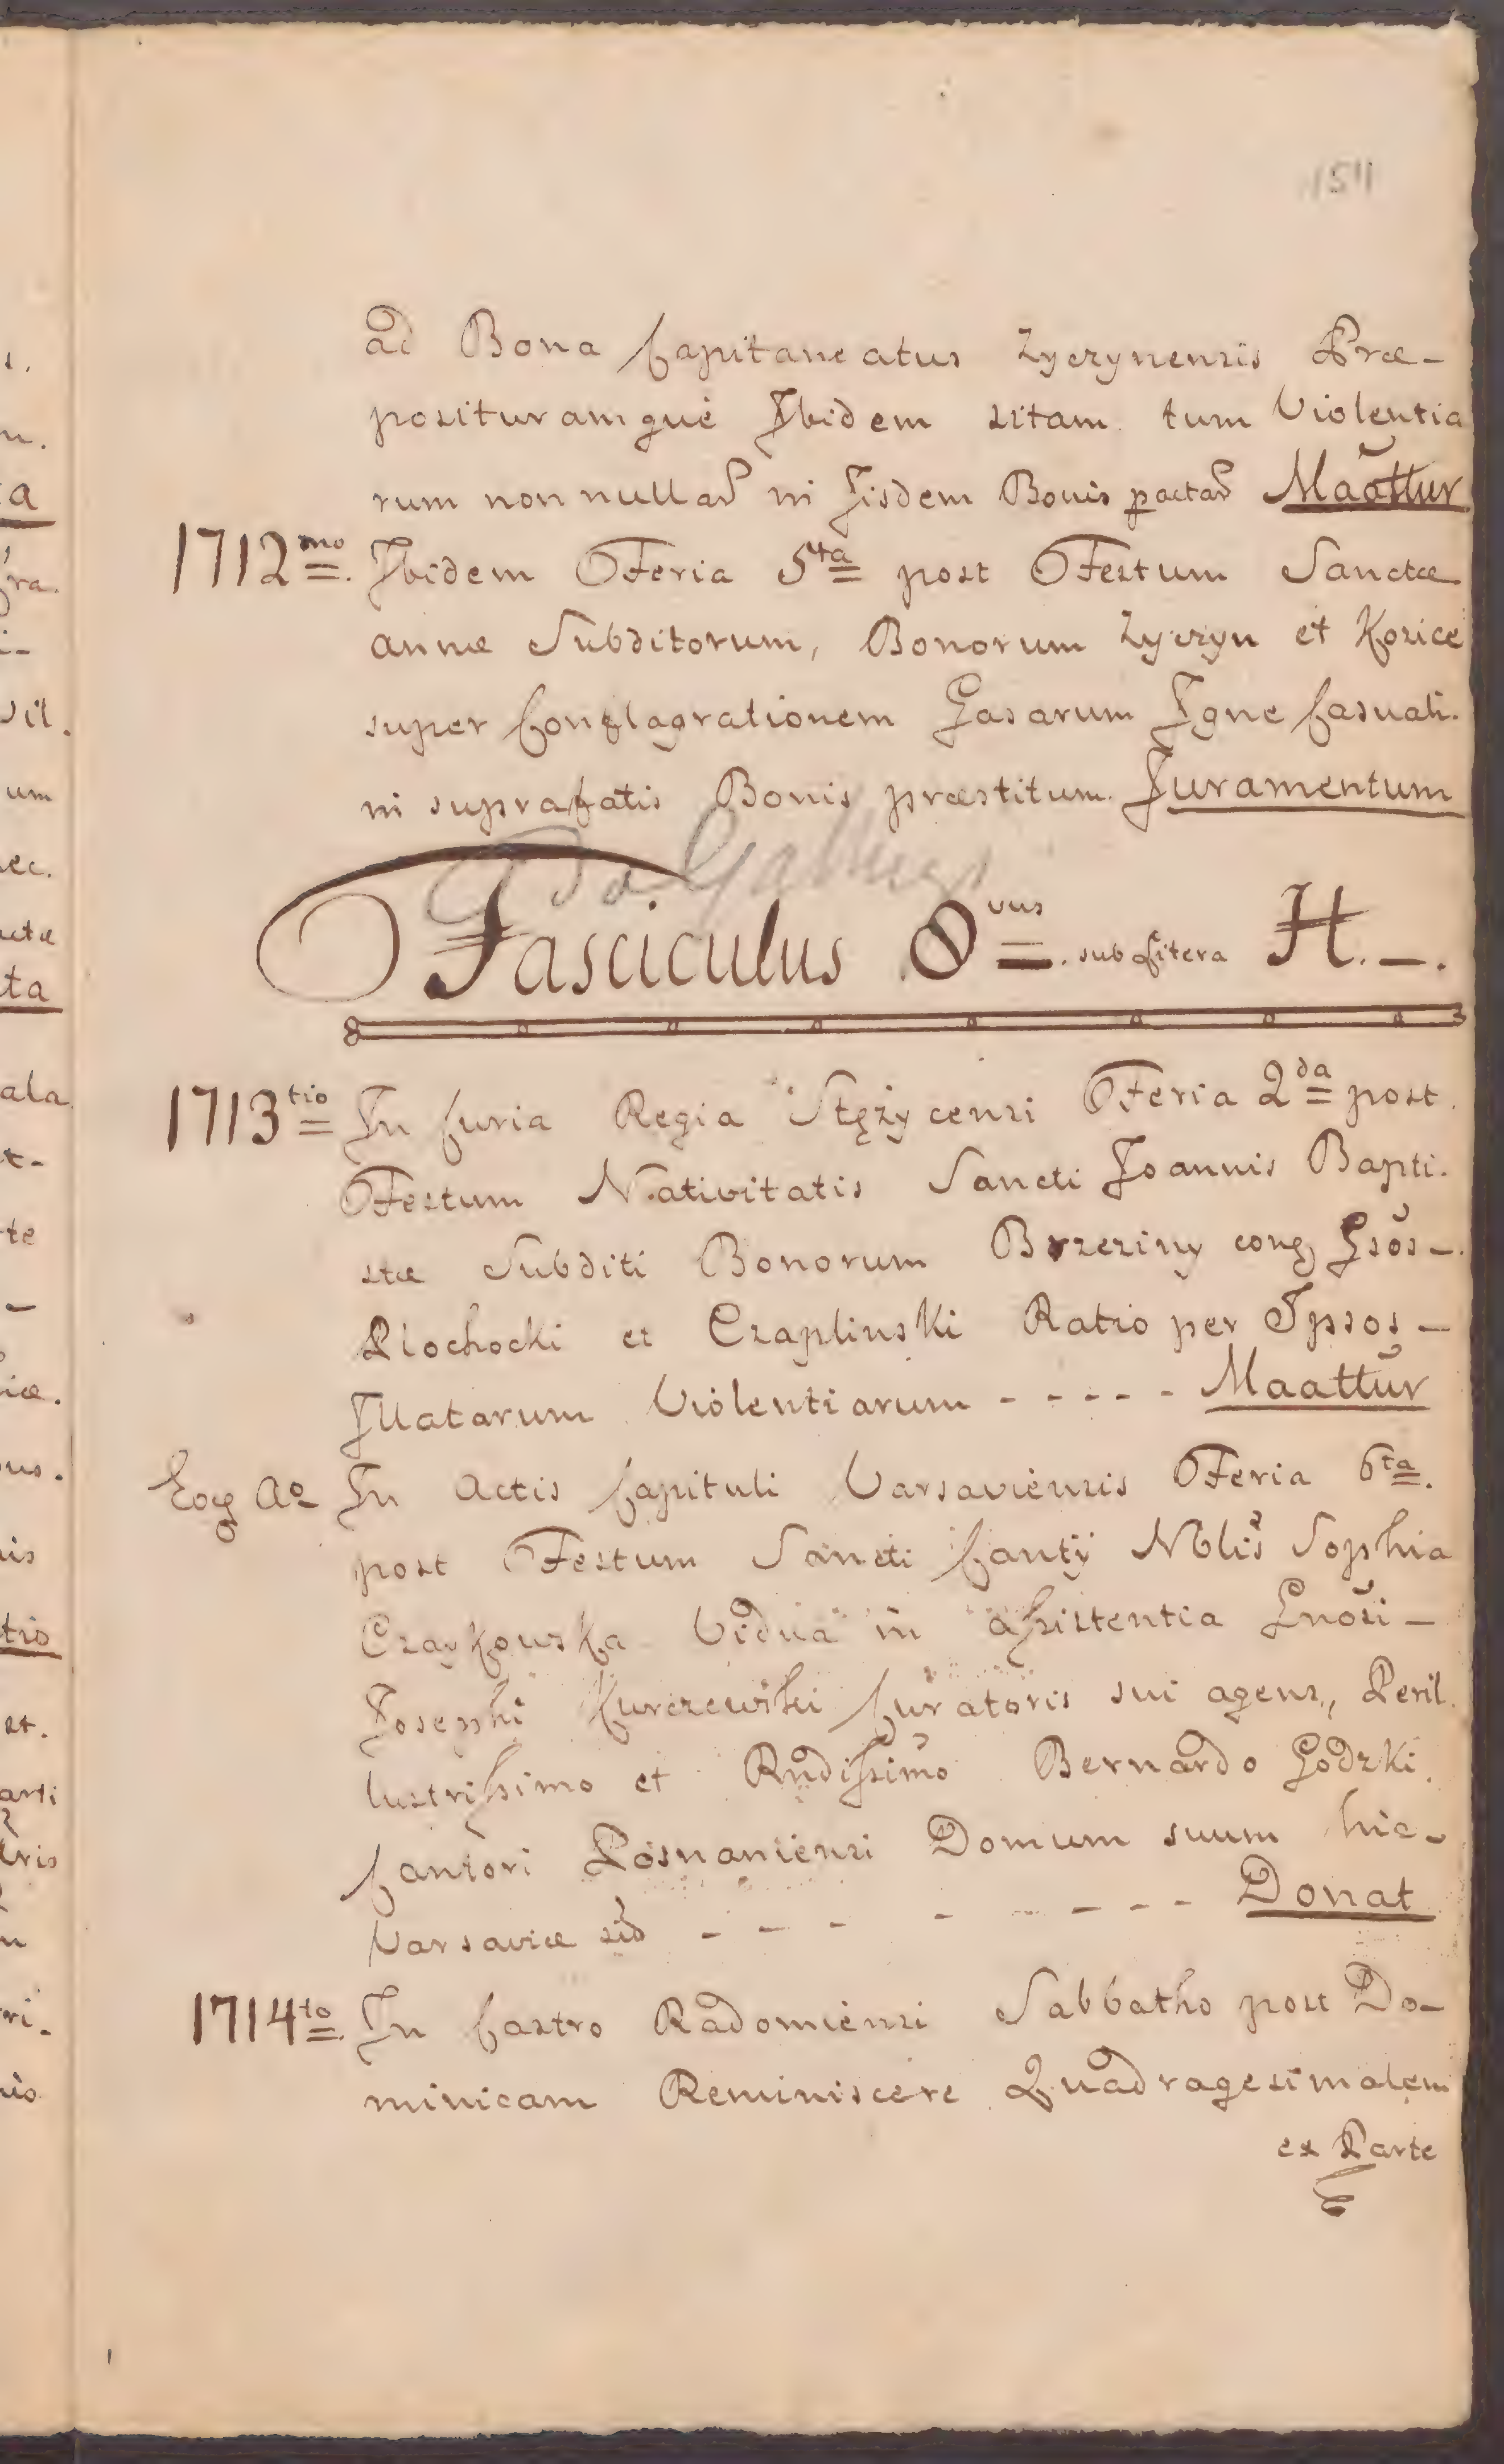 1511
ad Bona Capitaneatus Zyczynensis Præ-
posituramque Ibidem sitam tum Violentia
rum non nullar in Iisdem Bonis pactar Maattur
1712mo. Ibidem Feria 5ta post Festum Sanctæ
annæ Subditorum, Bonorum Zyczyn et Kozice
super Conflagrationem Casarum Igne Casuali.
in suprafatis Bonis præstitum Juramentum
Fasciculus 8vus. sub Litera H.-.
1713tio In Curia Regia Stężycensi Feria 2da post.
Festum Nativitatis Sancti Joannis Bapti.
stæ Subditi Bonorum Brzeziny cong Gsos-
Plochocki et Czaplinski Ratio per Ipsos-
Illatarum Violentiarum ----- Maattur
Eog Ao In Actis Capituli Varsaviensis Feria 6ta.
post Festum Sancti Cantÿ Nblis Sophia
Czaykowska Vidua in assistentia Gnosi-
Josephi Kurczewski Curatoris sui agens, Peril.
lustrissimo et Rndissimo Bernardo Godzki.
Cantori Posnaniensi Domum suum hic-
Varsaviæ sid - - - - - - - - Donat
1714to. In Castro Radomiensi Sabbatho post Do-
minicam Reminiscere Quadragesimalem
ex Parte